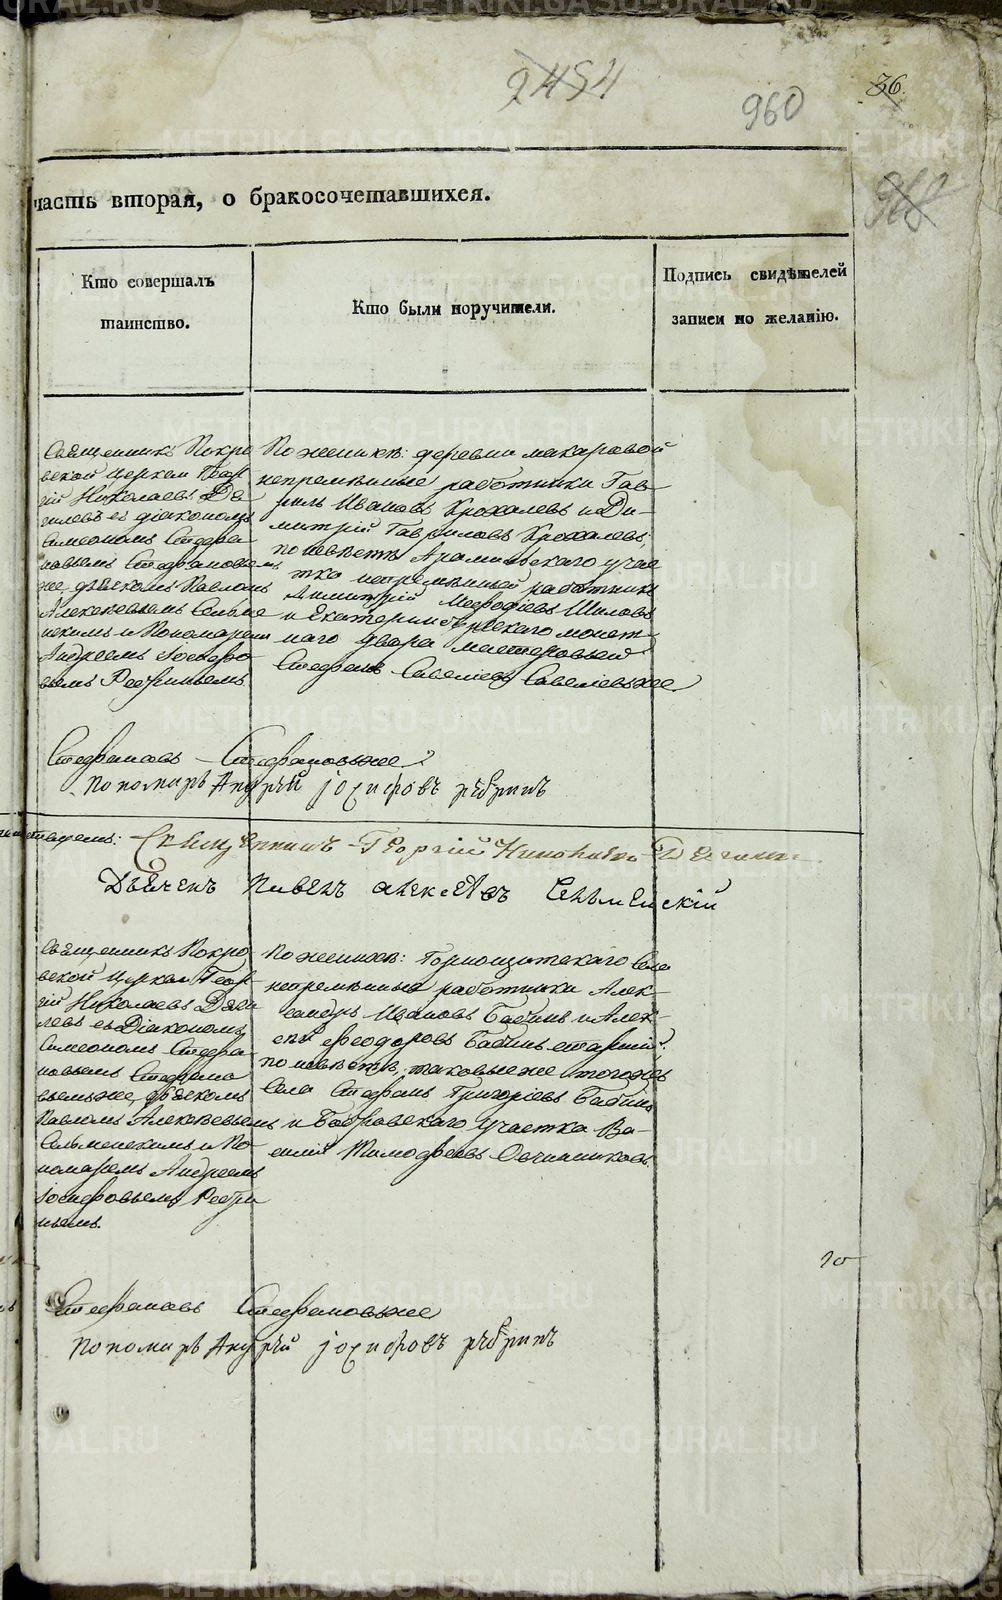 2454
960
36.
часть вторая, о бракосочетавшихся.
Кто совершалъ
таинство.
Кто были поручители.
Подпись свидѣтелей
записи по желанію.
Священникъ Покро
вской церкви Геор
гій Николаевъ Дя
гилевъ съ діакономъ
Симеономъ Стефа
новымъ Стефановым
же, дьячкомъ Павломъ
Алексѣевымъ Сельме
нскимъ и Пономаремъ
Андреемъ Іосифо
вымъ Ребринымъ
По женихѣ: деревни макаровой
непремѣнные работники Гав
рилъ Ивановъ Крохалевъ и Ди-
митрій Гавриловъ Крохалевъ;
по невѣстѣ Арамильскаго учас
тка непремѣнный работникъ
Димитрій Меѳодіевъ Шиловъ
и Екатеринбургскаго монет
наго двора мастеровый
Стефанъ Савеліевъ Савеліевъ же
Стефановъ Стефановъ же
Пономарь Андрей Іосифовъ Ребринъ
Священникъ Георгій Николаевъ Дягилевъ
Дьячекъ Павелъ Алексѣевъ Сельменскій
Священникъ Покро
вской церкви Геор-
гій Николаевъ Дяги
левъ съ Діакономъ
Симеономъ Стефа
новымъ Стефано
вымъ же, дьячкомъ
Павломъ Алексѣевымъ
Сельменскимъ и По-
номаремъ Андреемъ
Іосифовымъ Ребри
нымъ.
По женихѣ: Горнощитскаго Села
непремѣнные работники Алек-
сандръ Ивановъ Бабинъ и Алек-
сѣй Феодоровъ Бабинъ старшій;
по невѣстѣ, таковые же тогожъ
Села Стефанъ Григоріевъ Бабинъ
и Бобровскаго участка Ва-
силій Тимофеевъ Овчинниковъ.
Стефановъ Стефановъ же
Пономарь Андрей Іосифовъ Ребринъ
METRIKI.GASO-URAL.RU